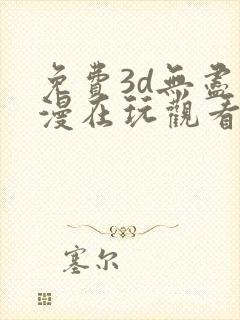 免費3d無盡
漫在玩觀看
塞尔